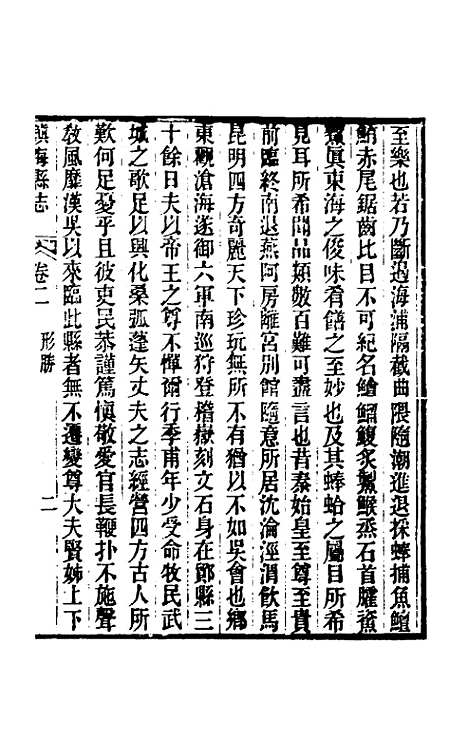 至樂也若乃斷遏海浦隔截曲隈隨潮進退採蜯捕魚鱣
鮪赤尾鋸齒比目不可紀名鱠鰡鰒炙𩼧鯸烝石首臛𩶭
鮆真東海之俊味肴饍之至妙也及其蜯蛤之屬目所希
見耳所希聞品類數百難可盡言也昔秦始皇至尊至貴
前臨終南退燕阿房離宮別館隨意所居沈淪涇渭飲馬
昆明四方奇麗天下珍玩無所不有猶以不如吳會也鄉
東觀滄海遂御六軍南巡狩登稽嶽刻文石身在鄮縣三
十餘日夫以帝王之尊不憚爾行季甫年少受命牧民武
城之歌足以興化桑弧蓬矢丈夫之志經營四方古人所
歎何足憂乎且彼吏民恭謹篤慎敬愛官長鞭扑不施聲
敎風靡漢吳以來臨此縣者無不遷變尊大夫賢姊上下
鎮海縣志 卷二 形勝 二